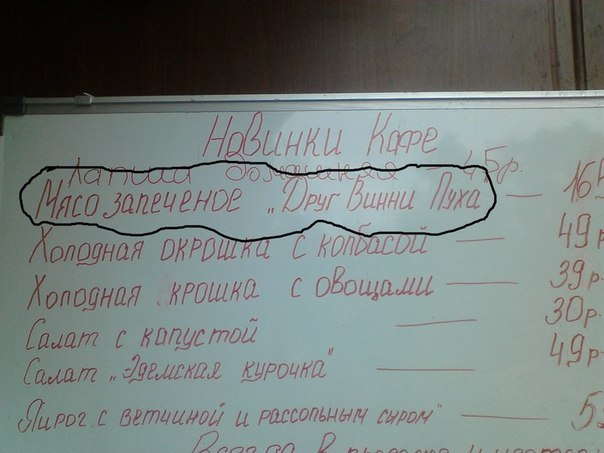 Новинки Кафе
Лапша домашняя — 45р.
Мясо запеченое „Друг Винни Пуха —
Холодная окрошка с колбасой — 49р
Холодная крошка с овощами — 39р
Салат с капустой — 30р.
Салат „Эдемская курочка" — 49р
Пирог с ветчиной и рассольным сыром" —